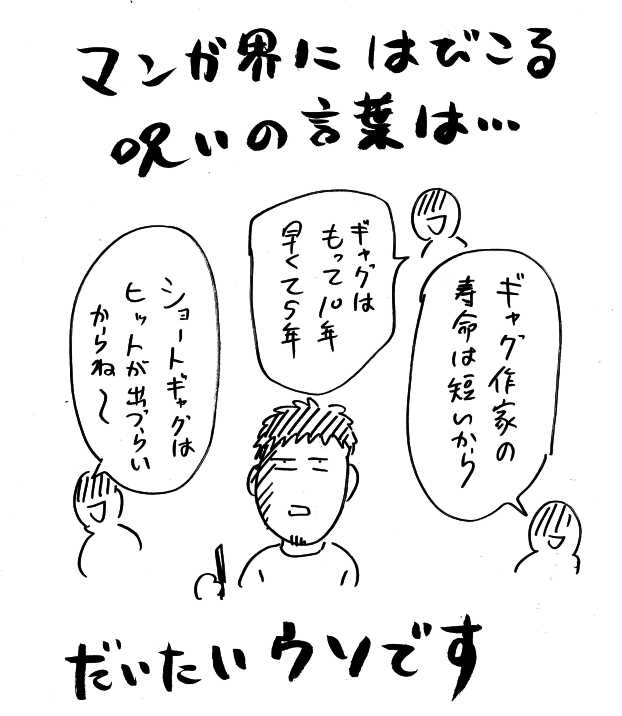 マンガ界にはびこる
呪いの言葉は…
ギャグ作家の
寿命は短いから
ギャグは
もって10年
早くて5年
ショートギャグは
ヒットが出づらい
からね〜
だいたいウソです